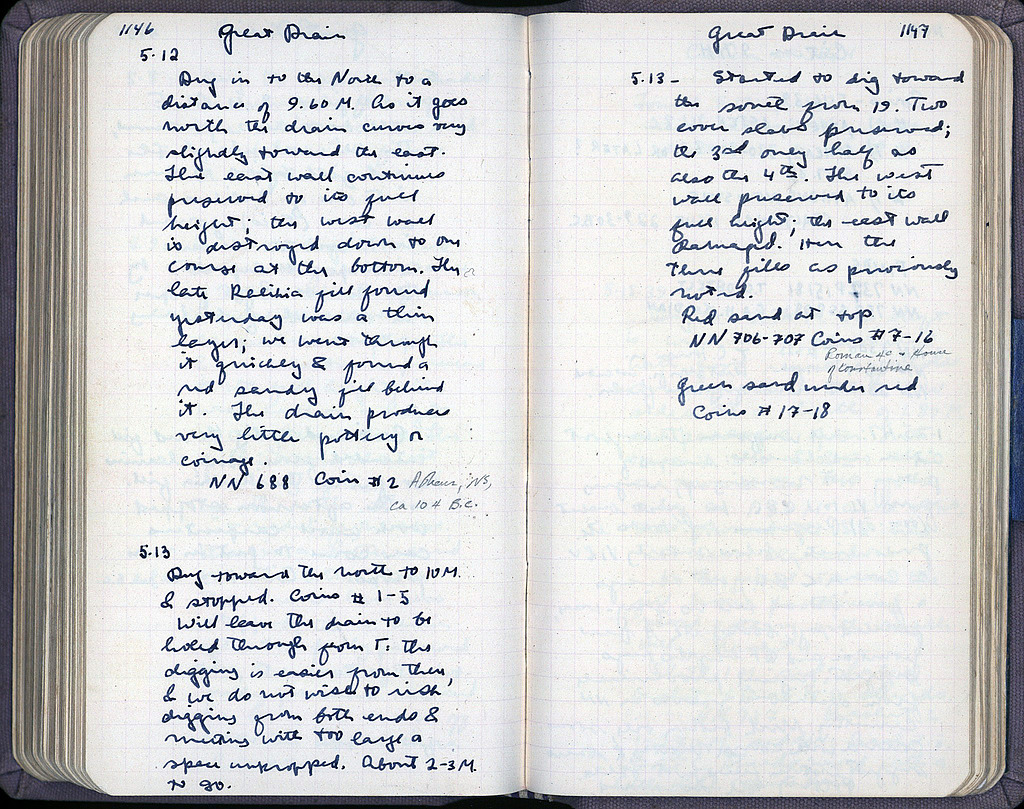 1146 Great Drain
5·12
Dug in to the North to a
distance of 9.60 M. As it goes
north the drain curves very
slightly toward the east.
The east wall continues
preserved to its full
height; the west wall
is destroyed down to one
course at the bottom. The
late Relihia fill found
yesterday was a thin
layer; we went through
it quickly & found a
red sandy fill behind
it. The drain produces
very little pottery or
coinage.
NN 688 Coin #2 Athens, NS,
ca 104 B.C.
5·13
Dug toward the north to 10 M.
& stopped. Coins # 1-5
Will leave the drain to be
holed through from T. the
digging is easier from there,
& we do not wish to risk
digging from both ends &
meeting with too large a
space unpropped. About 2-3 M.
to go.
Great Drain 1147
5·13- Started to dig toward
the south from 19. Two
cover slabs preserved;
the 3rd only half as
also the 4th. The west
wall preserved to its
full height; the east wall
damaged. Here the
three fills as previously
noted.
Red sand at top
NN 706-707 Coins #7-16
Roman 4c + House
of Constantine
Green sand under red
Coins # 17-18